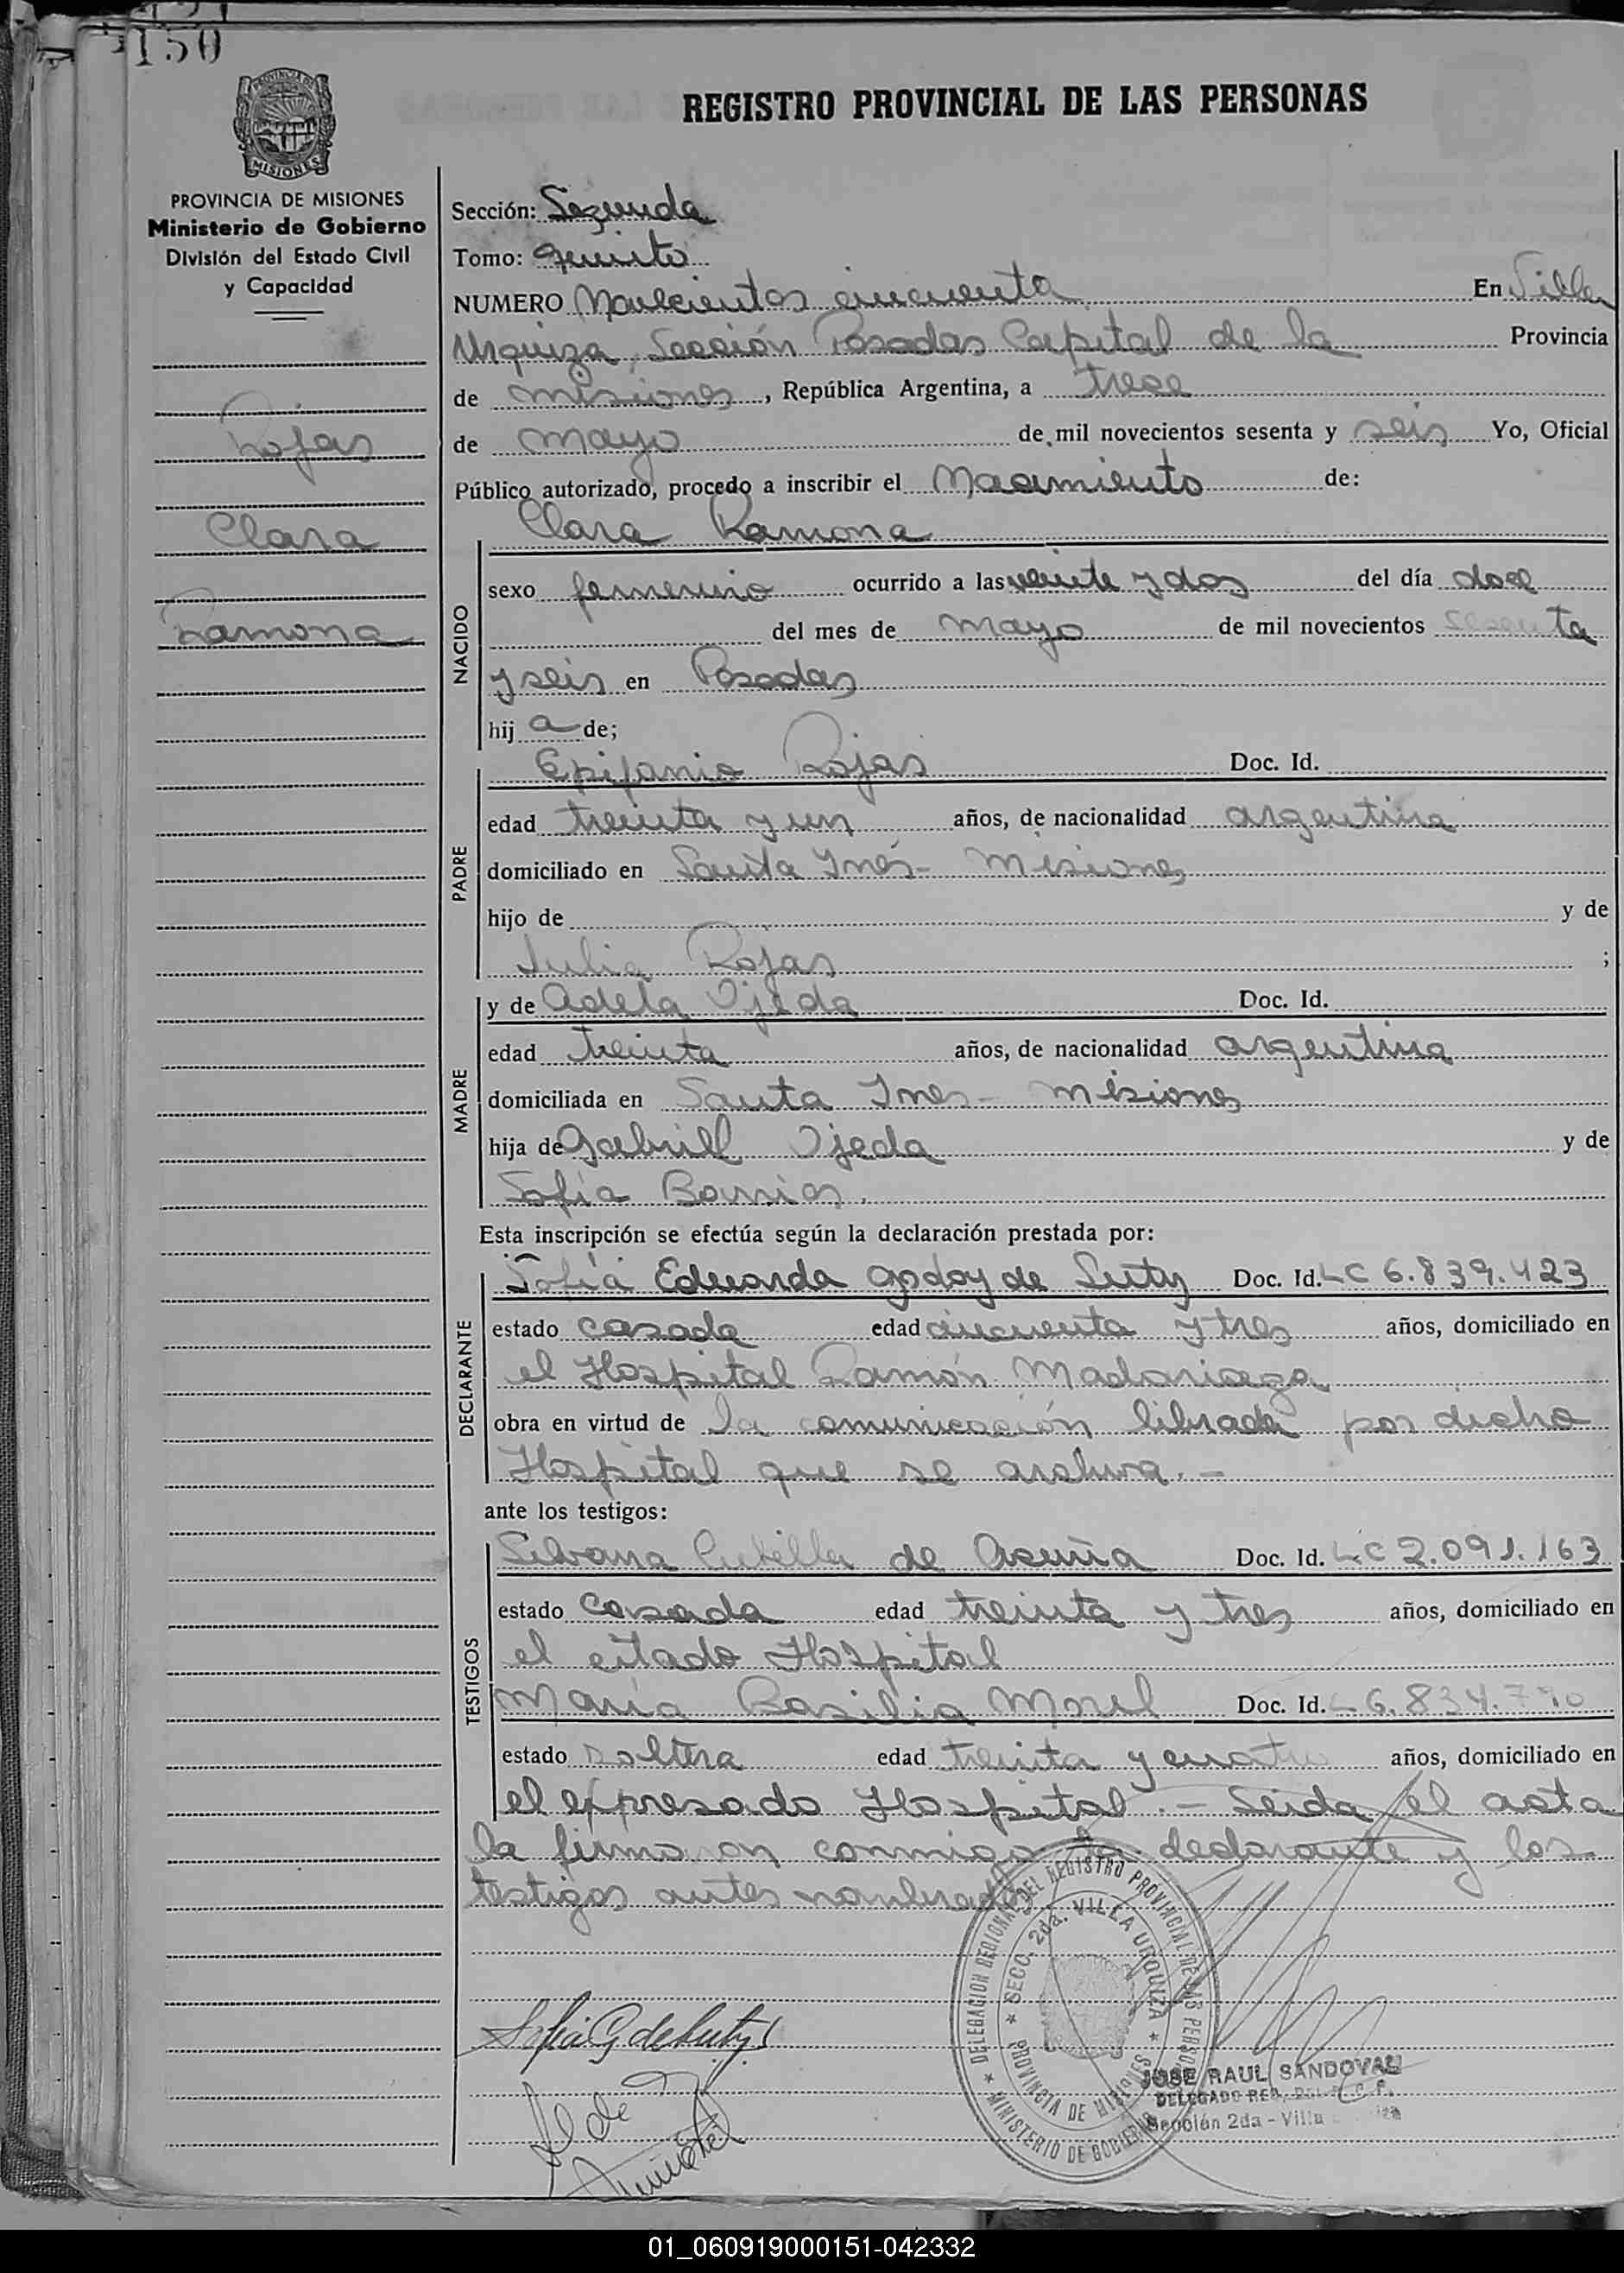 150
REGISTRO PROVINCIAL DE LAS PERSONAS
MISIONES
PROVINCIA DE MISIONES
Ministerio de Gobierno
División del Estado Civil
y Capacidad
Rojas
Clara
Ramona
Sección: Segunda
Tomo: quinto
NUMERO Novecientos cincuenta En Villa
Urquiza, Sección Posadas Capital de la Provincia
de misiones, República Argentina, a trece
de mayo de mil novecientos sesenta y seis Yo, Oficial
Público autorizado, procedo a inscribir el Nacimiento de:
Clara Ramona
NACIDO
sexo femenino ocurrido a las veinte y dos del día doce
del mes de mayo de mil novecientos sesenta
y seis en Posadas
hij a de;
PADRE
Epifanio Rojas Doc. Id.
edad treinta y un años, de nacionalidad argentina
domiciliado en Santa Inés - Misiones
hijo de y de
Julia Rojas ;
MADRE
y de Adela Ojeda Doc. Id.
edad treinta años, de nacionalidad argentina
domiciliada en Santa Ines - Misiones
hija de Gabriel Ojeda y de
Sofía Barrios.
Esta inscripción se efectúa según la declaración prestada por:
DECLARANTE
Sofía Eduarda Godoy de Luty Doc. Id. LC 6.839.423
estado casada edad cincuenta y tres años, domiciliado en
el Hospital Ramón Madariaga
obra en virtud de la comunicación librada por dicho
Hospital que se archiva. -
ante los testigos:
TESTIGOS
Silvana Cubilla de Acuña Doc. Id. LC 2.091.163
estado casada edad treinta y tres años, domiciliado en
el citado Hospital
María Basilia Morel Doc. Id. L 6.834.790
estado soltera edad treinta y cuatro años, domiciliado en
el expresado Hospital. - Leida el acta
la firmaron conmigo la declarante y los
testigos antes nombrados
DELEGACION REGIONAL DEL REGISTRO PROVINCIAL DE LAS PERSONAS
MINISTERIO DE GOBIERNO
SECC. 2da. VILLA URQUIZA
PROVINCIA DE MISIONES
Sofia G de Luty
JOSE RAUL SANDOVAL
DELEGADO REG.
Sección 2da - Villa
01_060919000151-042332